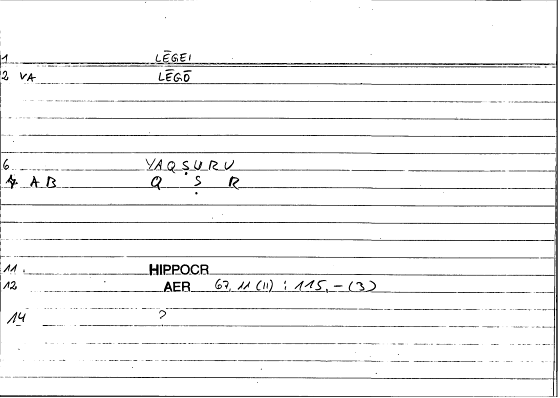 1 LĒGEI
2 VA LĒGŌ
6 YAQṢURU
7 A B Q Ṣ R
11 HIPPOCR
12 AER 67,11 (11) : 115,-(3)
14 ?